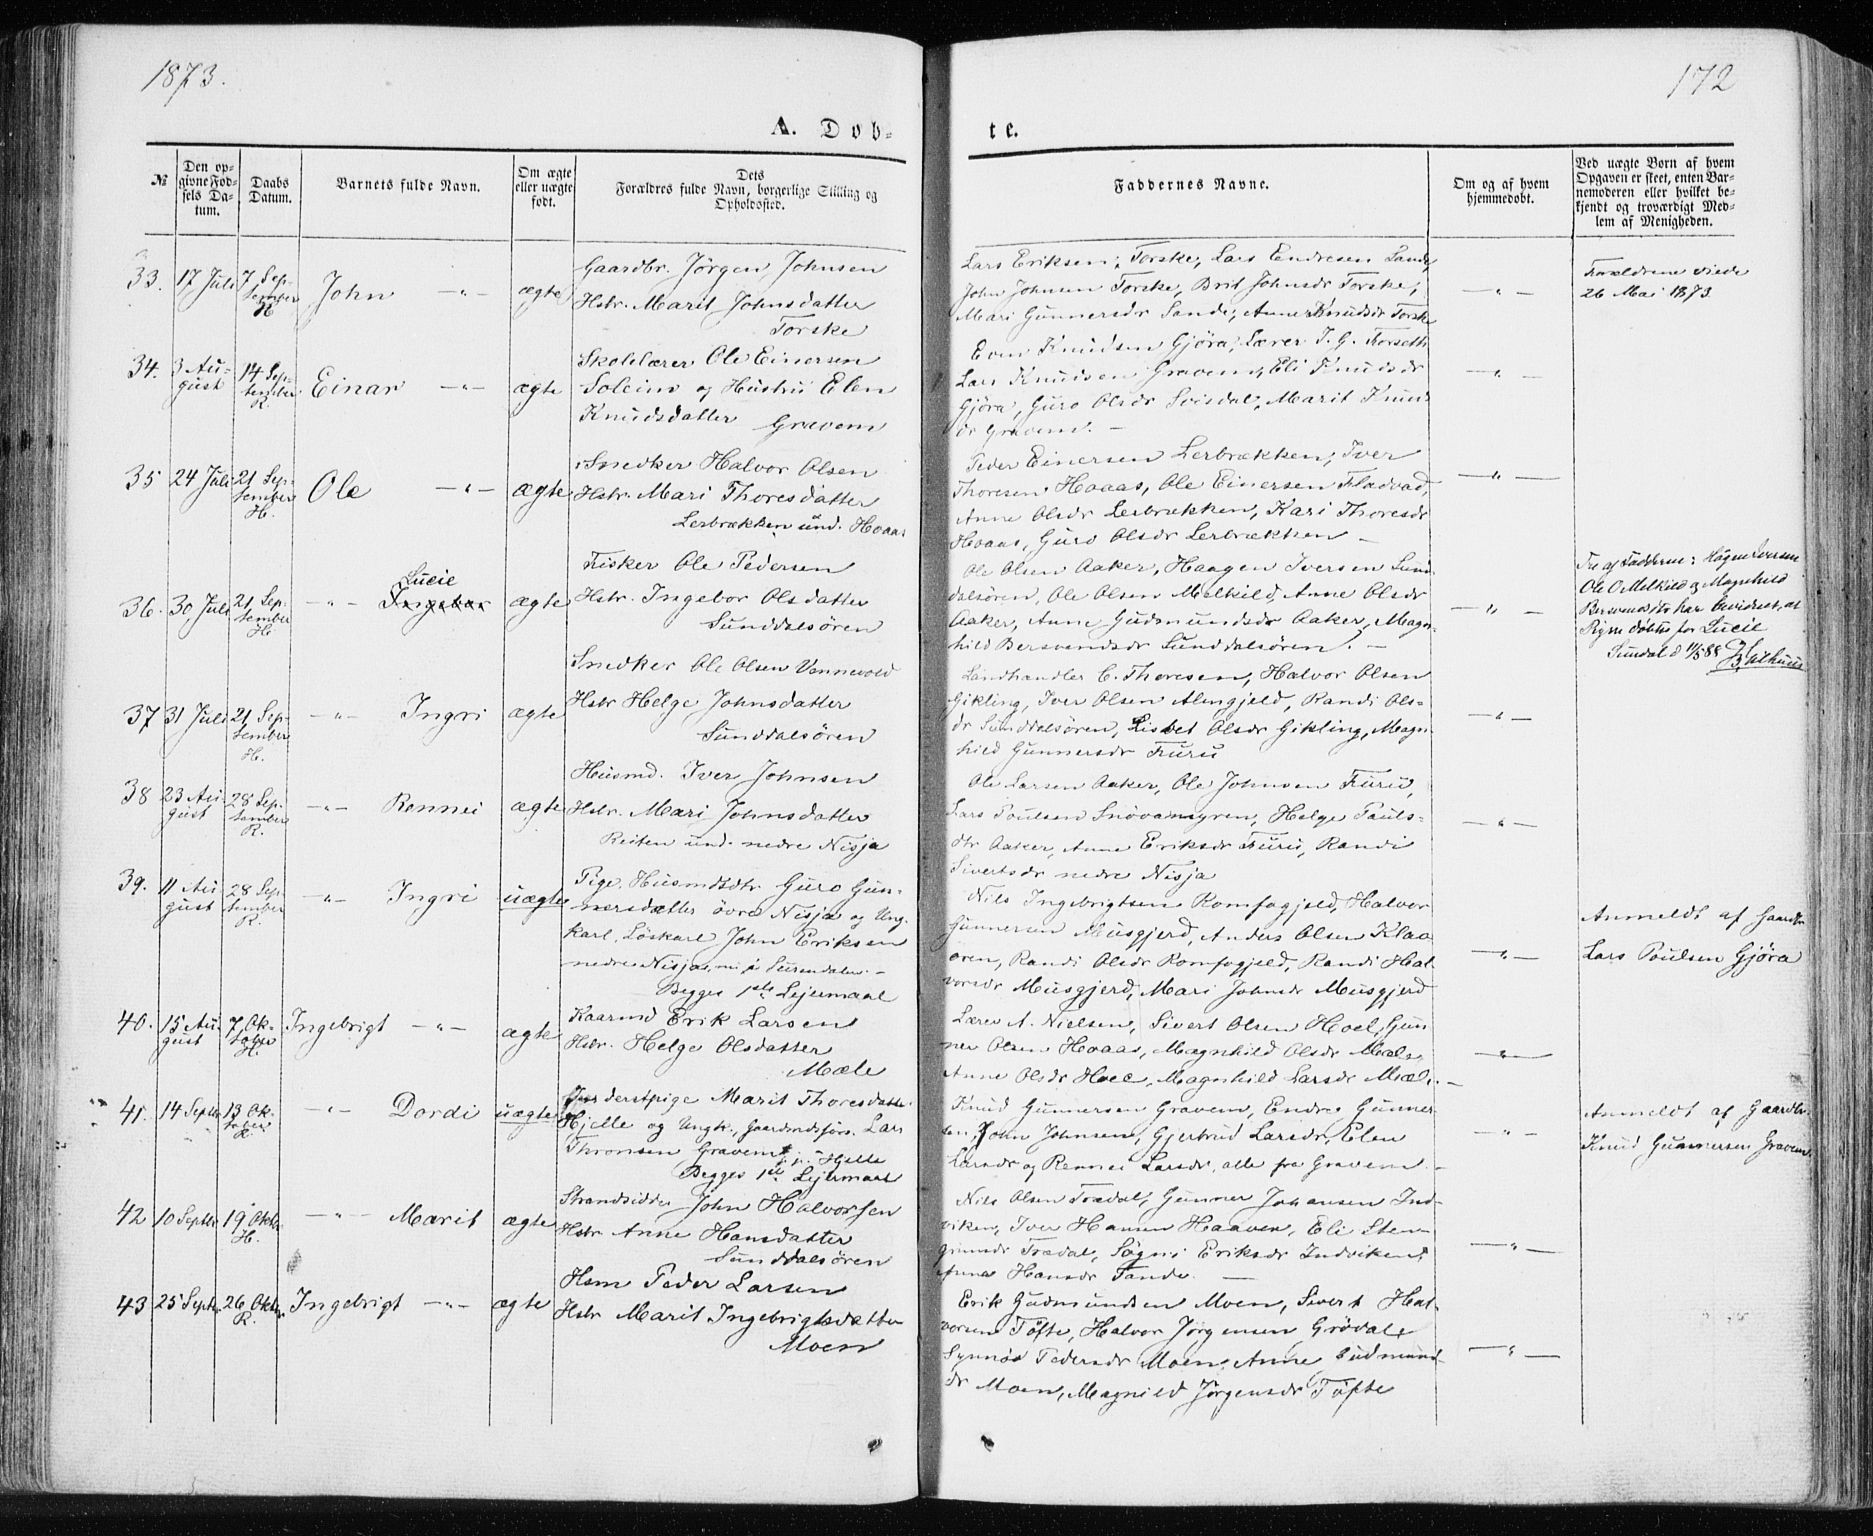 1873.
172
A. Døb-
te.
№
Den op-
givne Fød-
sels Da-
tum.
Daabs
Datum.
Barnets fulde Navn.
Om ægte
eller uægte
født.
Dets
Forældres fulde Navn, borgerlige Stilling og
Opholdssted.
Faddernes Navne.
Om og af hvem
hjemmedøbt.
Ved uægte Børn af hvem
Opgaven er skeet, enten Bar-
nemoderen eller hvilket be-
kjendt og troværdigt Med-
lem af Menigheden.
33.
17 Juli
7 Sep-
tember
H
John -"-
ægte
Gaardbr. Jörgen Johnsen
Hstr. Marit Johnsdatter
Torske
Lars Eriksen, Torske, Lars Endresen Sande,
John Johnsen Torske, Brit Johnsdr Torske,
Mari Gunnersdr Sande, Anne Knudsdr Torske
-"-
Forældrene viede
26 Mai 1873.
34.
3 Au-
gust
14 Sep-
tember
R.
Einar -"-
ægte
Skolelærer Ole Einersen
Soleim og Hustru Elen
Knudsdatter Gravem
Even Knudsen Gjöra, Lærer I. G. Forseth
Lars Knudsen Gravem, Eli Knudsdr
Gjöra, Guro Olsdr Svisdal, Marit Knuds
dr Gravem. -
-"-
35
24 Juli
21 Sep-
tember
H.
Ole -"-
ægte
Snedker Halvor Olsen
Hstr. Mari Thoresdatter
Lerbrækken und. Hoaas
Peder Einersen Lerbrækken, Iver
Thoresen Hoaas, Ole Einersen Fladvad,
Anne Olsdr Lerbrækken, Kari Thoresdr
Hoaas, Guro Olsdr Lerbrækken -
-"-
36.
30 Juli
21 Sep-
tember
H.
-"-
Lucie
Ingebor
ægte
Fisker Ole Pedersen
Hstr. Ingebor Olsdatter
Sunddalsören
Ole Olsen Aaker, Haagen Iversen Sund-
dalsören, Ole Olsen Melkild, Anne Olsdr
Aaker, Anne Gudmundsdr Aaker, Magn-
hild Bersvendsdr Sunddalsören. -
-"-
Tre af Fadderne: Hagen Iversen
Ole O Melkild og Magnhild
Bersvendsdtr har bevidnet, at
Pigen døbtes for Lucie
Sundal d 11/5 88
37
31 Juli
21 Sep-
tember
H.
-"- Ingri
ægte
Snedker Ole Olsen Vennevold
Hstr Helge Johnsdatter
Sunddalsören
Landhandler C. Thoresen, Halvor Olsen
Gikling, Iver Olsen Almgjeld, Randi Ols-
dr Sunddalsören, Lisbet Olsdr Gikling, Magn-
hild Gunnersdr Furu
-"-
38
23 Au-
gust
28 Sep-
tember
R.
-"- Rønnei
ægte
Husmd. Iver Johnsen
Hstr. Mari Johnsdatter
Reiten und. nedre Nisja
Ole Larsen Aaker, Ole Johnsen Furu,
Lars Poulsen Snövamyren, Helge Pauls-
dtr Aaker, Anne Eriksdr Furu, Randi
Sivertsdr nedre Nisja
-"-
39.
11 Au-
gust
28 Sep-
tember
R.
-"- Ingri
uægte
Pige, Husmdsdtr Guro Gun-
nersdatter övre Nisja og Ung-
karl, Löskarl John Eriksen
nedre Nisja, nu i Surendalen. -
Begges 1ste Lejermaal
Nils Ingebrigtsen Romfogjeld, Halvor
Gunnersen Musgjerd, Anders Olsen Klao
ören, Randi Olsdr Romfogjeld, Randi Hal-
vorsdr Musgjerd, Mari Johnsdr Musgjerd
-"-
Anmeldt af Gaardbr
Lars Poulsen Gjöra
40.
15 Au-
gust
7 Ok-
tober
H.
Ingebrigt -"-
ægte
Kaarmd Erik Larsen
Hstr. Helge Olsdatter
Mæle
Lærer A. Nielsen, Sivert Olsen Hoel, Gun
ner Olsen Hoaas, Magnhild Olsdr Mæle,
Anne Olsdr Hoel, Magnhild Larsdr Mæle. -
-"-
41.
14 Septbr
13 Ok-
tober
R.
-"- Dordi
uægte
Inderstpige Marit Thoresdatter
Hjelle og Ungk., Gaardmdssøn. Lars
Thronsen Gravem
Begges 1ste Lejermaal
Knud Gunnersen Gravem, Endre Gunner-
sen, John Johnsen, Gjertrud Larsdr, Elen
Larsdr og Rønnei Larsdr, alle fra Gravem. -
-"-
Anmeldt af Gaardbr.
Knud Gunnersen Gravem.
42
10 Septbr
19 Oktbr
H.
-"- Marit
ægte
Strandsidder John Halvorsen
Hstr Anne Hansdatter
Sunddalsören
Nils Olsen Trædal, Gunner Johansen Ind-
viken, Iver Hansen Haaven, Eli Sten-
grimsdr Trædal, Sögni Eriksdr Indviken,
Anne Hansdr Tande. -
-"-
43
25 Septbr
26 Oktbr
R.
Ingebrigt -"-
ægte
Hsm Peder Larsen
Hstr Marit Ingebrigtsdatter
Moen
Erik Gudmundsen Moen, Sivert Hal-
vorsen Töfte, Halvor Jörgensen Grödal,
Synnöv Pedersdr Moen, Anne Gudmund-
dr Moen, Magnild Jörgensdr Töfte
-"-